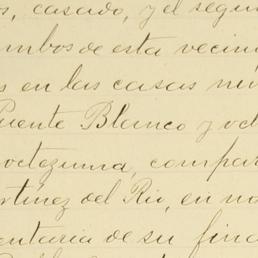 s, casado, y el segun
ambos de esta vecin
s en las casas nú
Puente Blanco y oct
octezuma, compar
rtínez del Rio, en no
entaria de su fina